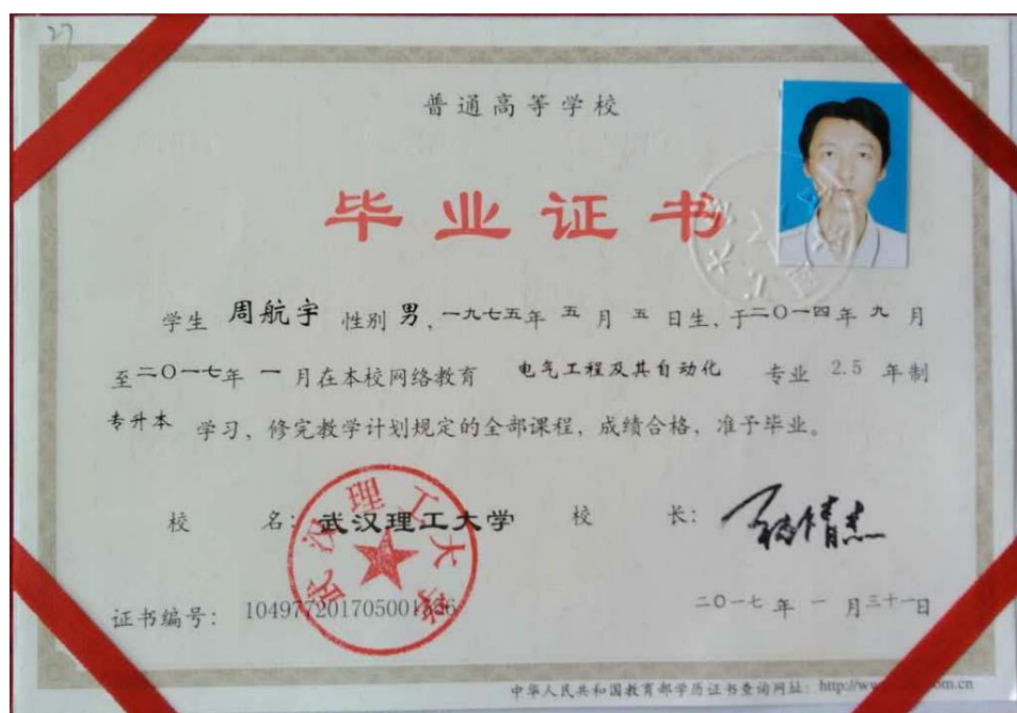 27
普通高等学校
毕业证书
学生 周航宇 性别 男，一九七五年 五 月 五 日生，于二〇一四年 九 月
至二〇一七年 一 月在本校网络教育 电气工程及其自动化 专业 2.5 年制
专升本 学习，修完教学计划规定的全部课程，成绩合格，准予毕业。
校 名：武汉理工大学 校 长：
武汉理工大学
证书编号：
二〇一七 年 一 月三十一日
中华人民共和国教育部学历证书查询网址：